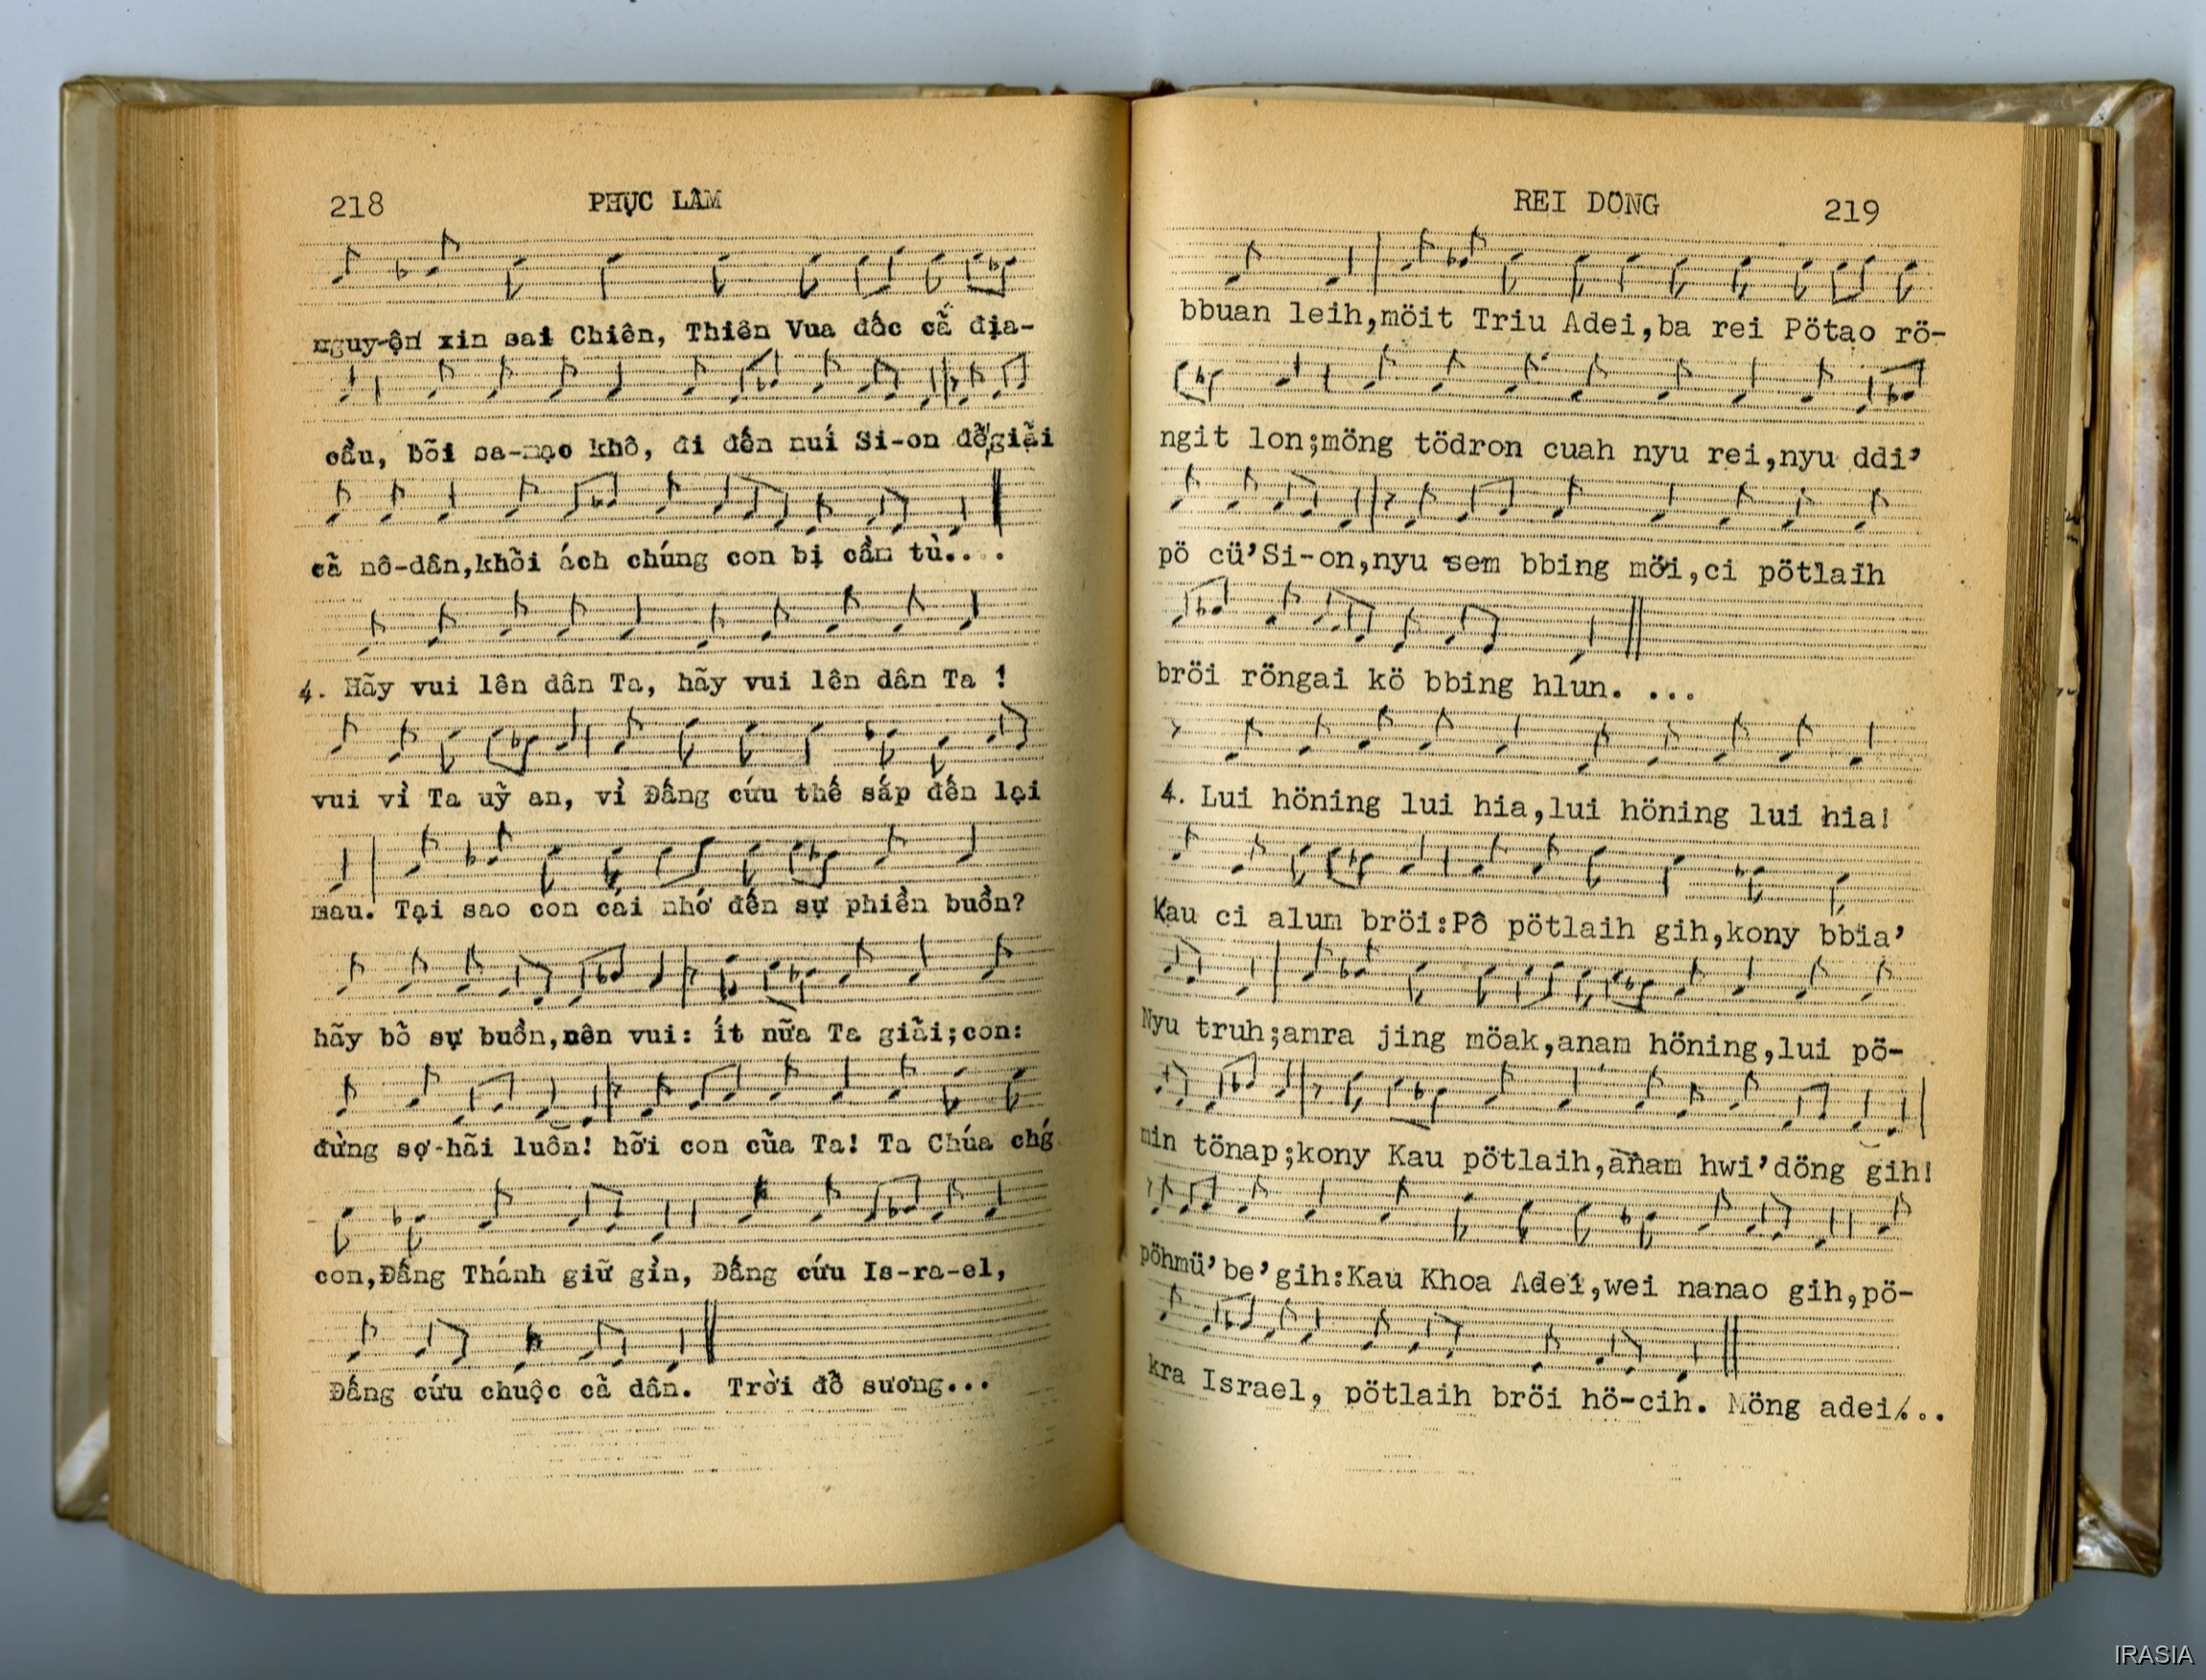 218 PHỤC LÂM
nguy-ện xin sai Chiên, Thiên Vua đốc cả địa-
cầu, bõi sa-mạc khô, đi đến nuí Si-on để giải
cả nô-dân,khỏi ách chúng con bị cầm tù.. .
4. Hãy vui lên dân Ta, hãy vui lên dân Ta !
vui vì Ta uỷ an, vì Đấng cứu thế sắp đến lại
mau. Tại sao con cái nhớ đến sự phiền buồn?
hãy bỏ sự buồn,nên vui: ít nữa Ta giải;con:
đừng sợ-hãi luôn! hỡi con của Ta! Ta Chúa
con,Đấng Thánh giữ gìn, Đấng cứu Is-ra-el,
Đấng cứu chuộc cả dân. Trời đổ sương...
REI DONG 219
bbuan leih,möit Triu Adei,ba rei Pötao rö-
ngit lon;möng tödron cuah nyu rei,nyu ddi’
pö cü’Si-on,nyu sem bbing möi,ci pötlaih
bröi röngai kö bbing hlun. ...
4. Lui höning lui hia,lui höning lui hia!
Kau ci alum bröi:Pô pötlaih gih,kony bbia’
Nyu truh;amra jing möak,anam höning,lui pö-
min tönap;kony Kau pötlaih,anam hwi’döng gih!
pöhmü’be’gih:Kau Khoa Adei,wei nanao gih,pö-
kra Israel, pötlaih bröi hö-cih. Möng adei/..
IRASIA